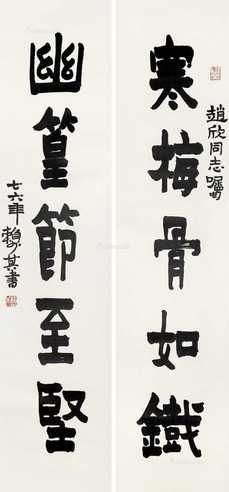 寒梅骨如鐵
趙欣同志囑
幽篁節至堅
七六年賴其書